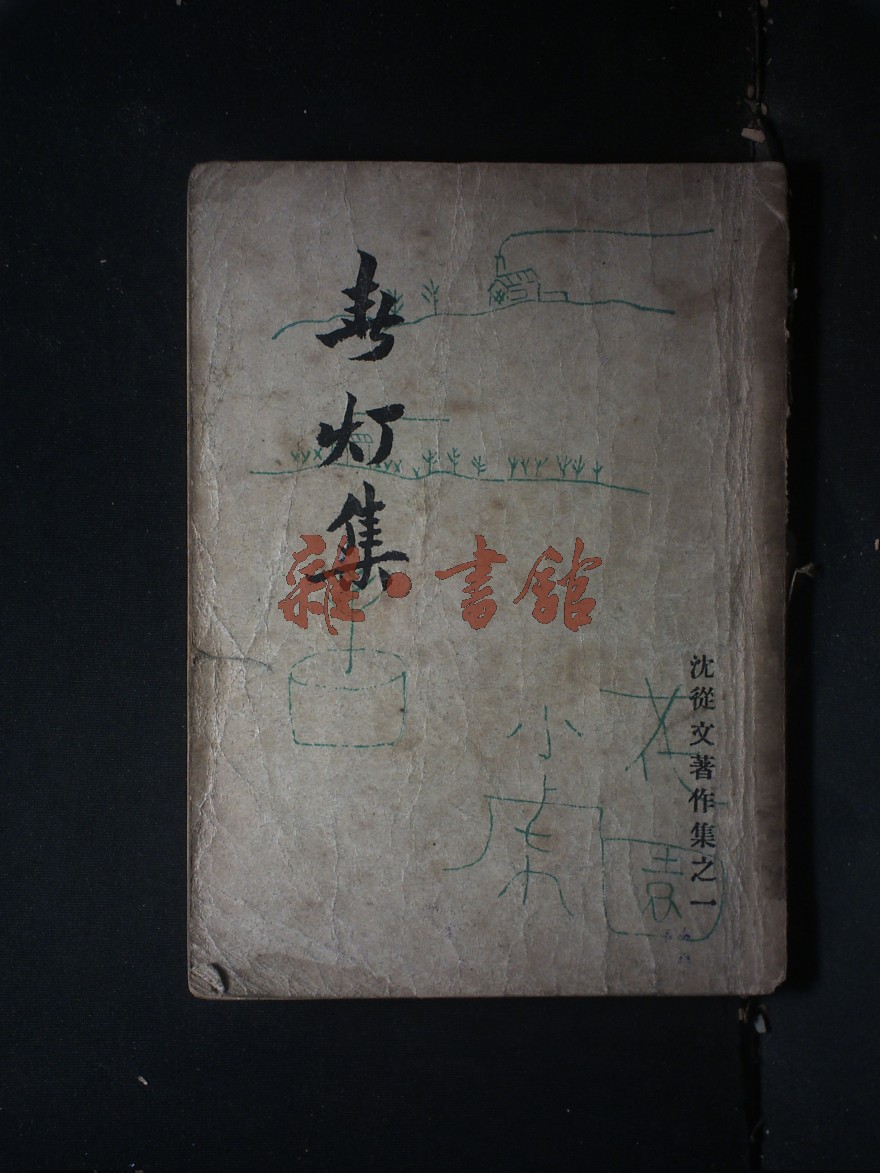 春灯集
雜·書館
沈從文著作集之一
小
園